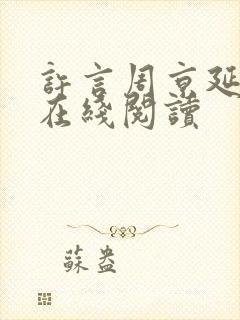 許言周京延
在綫閱讀
蘇盎